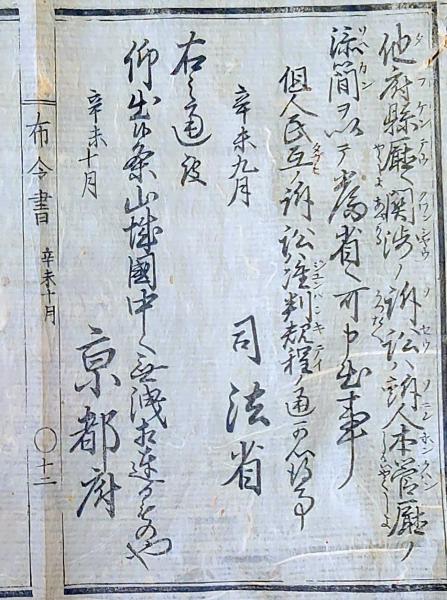 他府縣廳ヘ関渉ノ訴訟ハ訴人本管廳ノ
添簡ヲ以テ當省ヘ可申出事
但人民互ノ訴訟准判規程ノ通可心得事
辛未九月
司法省
右之通被
仰出候条山城國中ヘ無洩相達るもの也
辛未十月
亰都府
布令書 辛未十月 〇十二